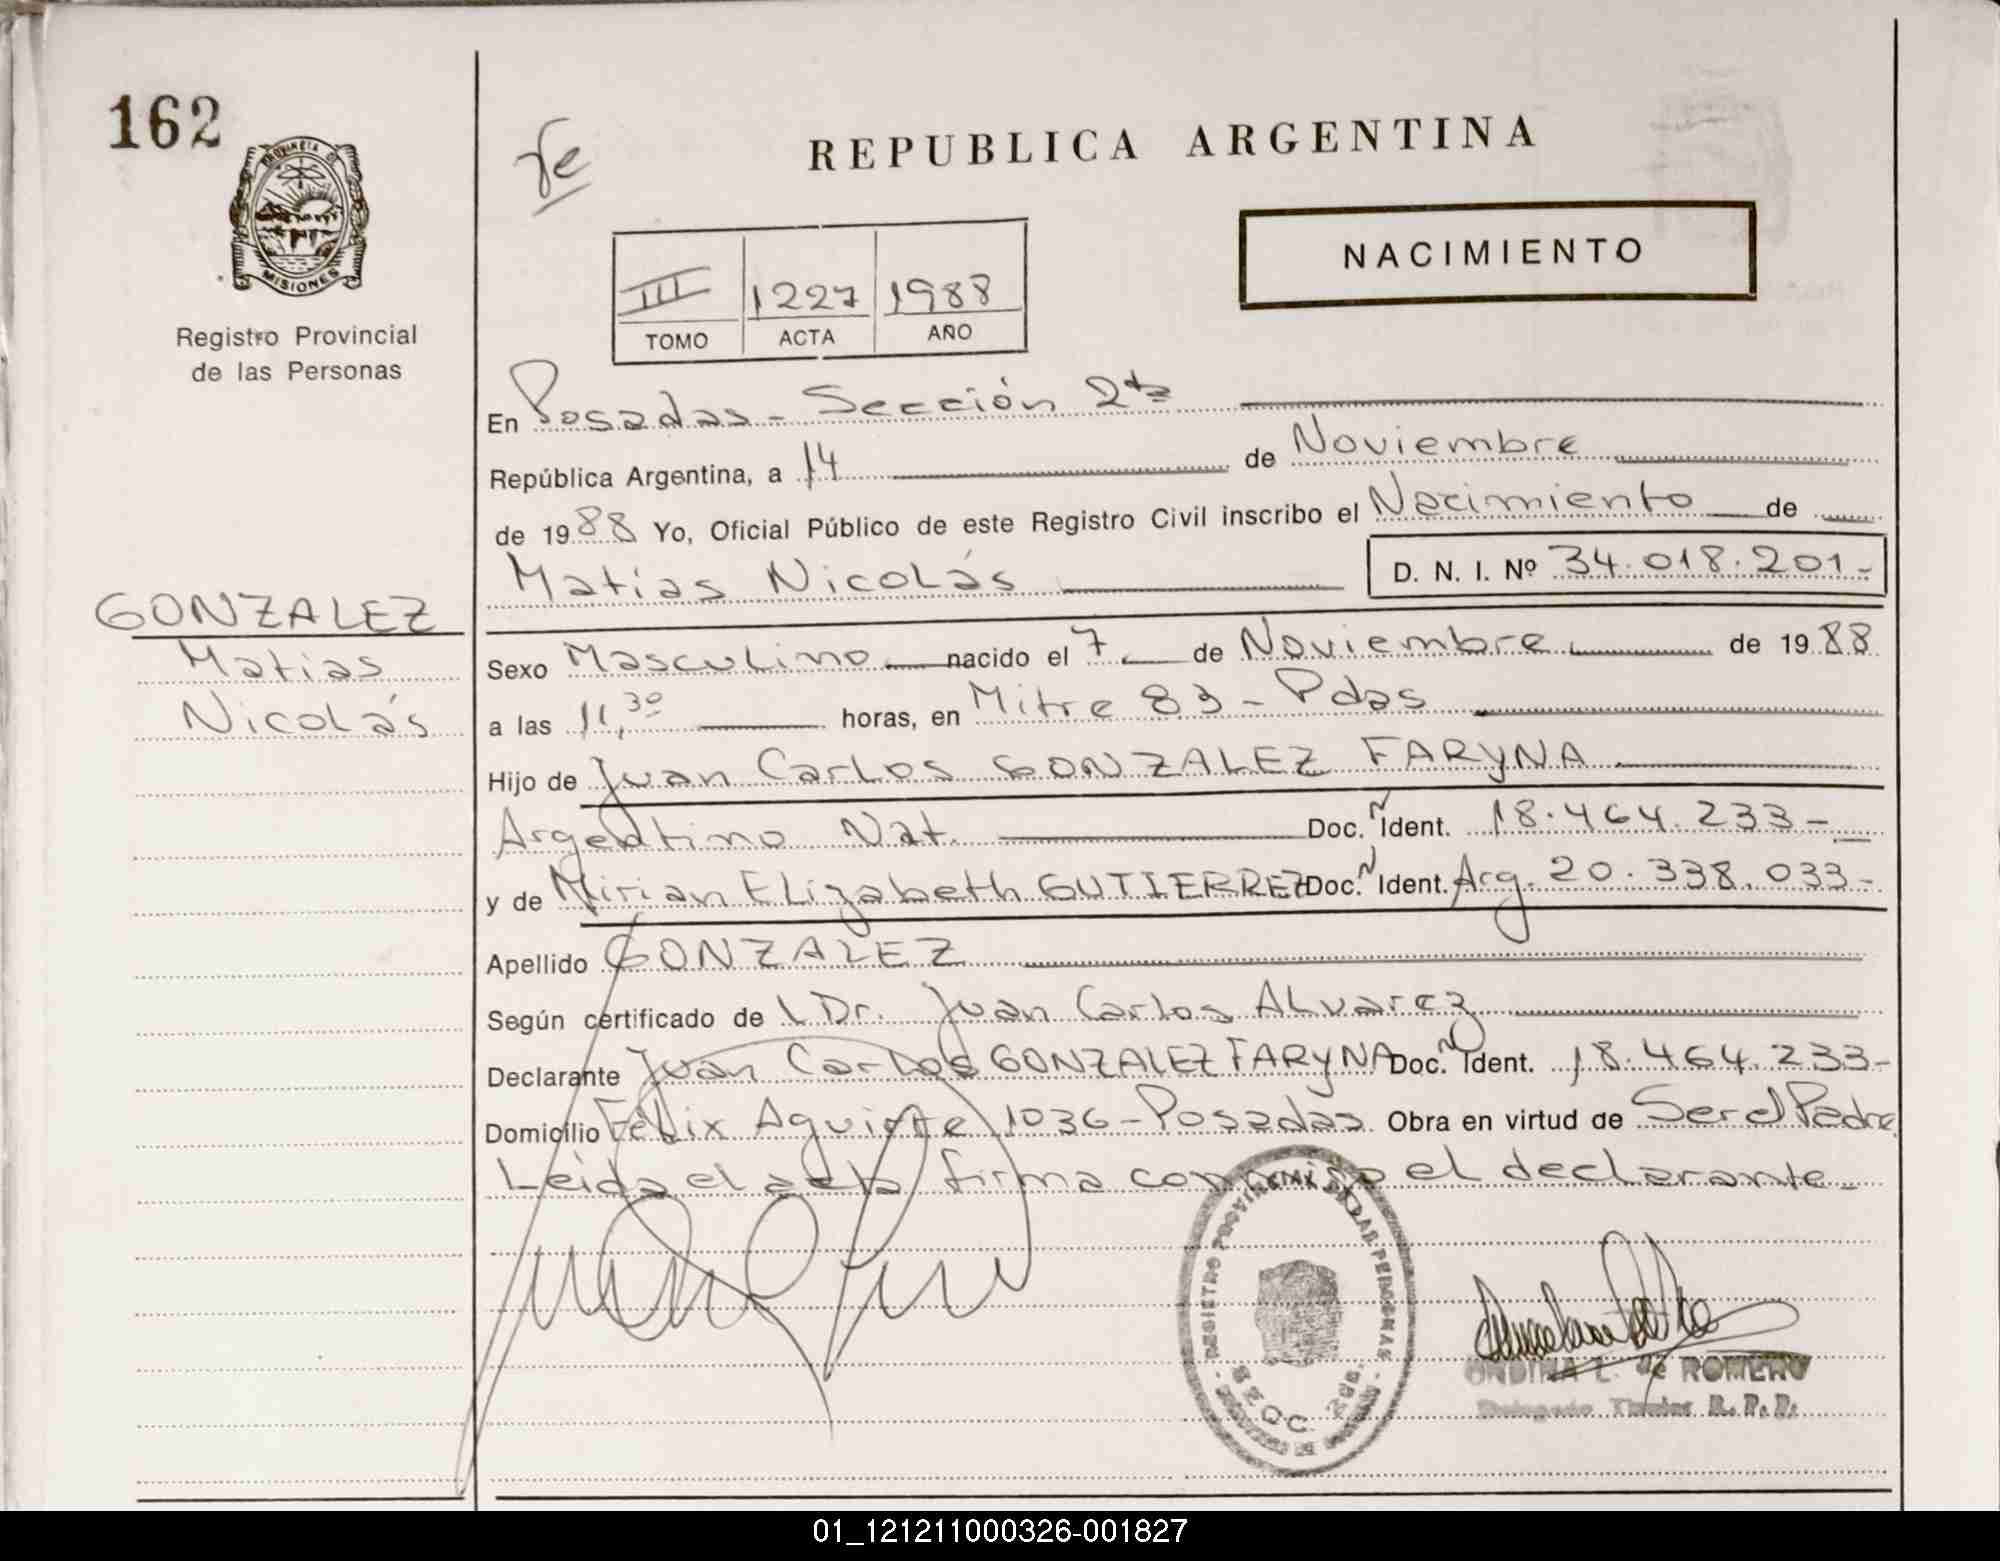 162
PROVINCIA DE
MISIONES
Registro Provincial
de las Personas
REPUBLICA ARGENTINA
NACIMIENTO
III 1227 1988
TOMO ACTA AÑO
En Posadas - Sección 2da
República Argentina, a 14 de Noviembre
de 1988 Yo, Oficial Público de este Registro Civil inscribo el Nacimiento de
Matías Nicolás D. N. I. Nº 34.018.201-
GONZALEZ
Matias
Nicolás
Sexo Masculino nacido el 7 de Noviembre de 1988
a las 11,30 horas, en Mitre 83 - Pdas
Hijo de Juan Carlos GONZALEZ FARYNA
Argentino Nat. Doc. N Ident. 18.464.233-
y de Mirian Elizabeth GUTIERREZ Doc. N Ident. Arg. 20.338.033-
Apellido GONZALEZ
Según certificado de L Dr. Juan Carlos ALvarez
Declarante Juan Carlos GONZALEZ FARYNA Doc. N Ident. 18.464.233-
Domicilio Félix Aguirre 1036 - Posadas Obra en virtud de Ser el Padre
Leida el acta firma conmigo el declarante-
REGISTRO PROVINCIAL DE LAS PERSONAS
SECC. 2da.
L. de ROMERO
Delegado Titular R. P. P.
01_121211000326-001827